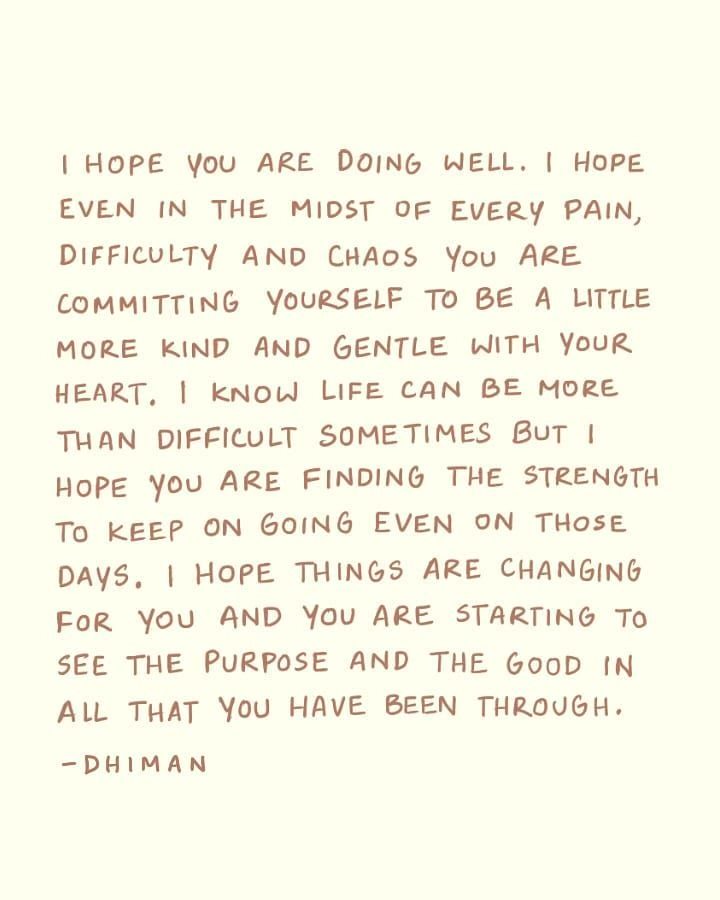 I HOPE YOU ARE DOING WELL. I HOPE
EVEN IN THE MIDST OF EVERY PAIN,
DIFFICULTY AND CHAOS YOU ARE
COMMITTING YOURSELF TO BE A LITTLE
MORE KIND AND GENTLE WITH YOUR
HEART. I KNOW LIFE CAN BE MORE
THAN DIFFICULT SOMETIMES BUT I
HOPE YOU ARE FINDING THE STRENGTH
TO KEEP ON GOING EVEN ON THOSE
DAYS. I HOPE THINGS ARE CHANGING
FOR YOU AND YOU ARE STARTING TO
SEE THE PURPOSE AND THE GOOD IN
ALL THAT YOU HAVE BEEN THROUGH.
-DHIMAN